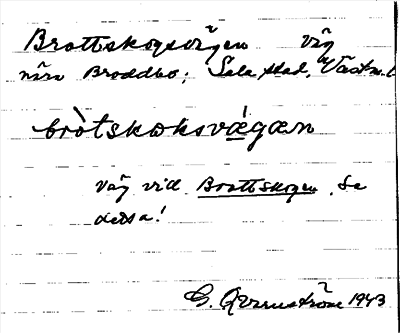 Brottskogsvägen väg
nära Broddbo, Sala stad, Västm. l
bròtskωksvǽgæn
väg vid Brottskogen. Se
detta!
G. Qvarnström 1943